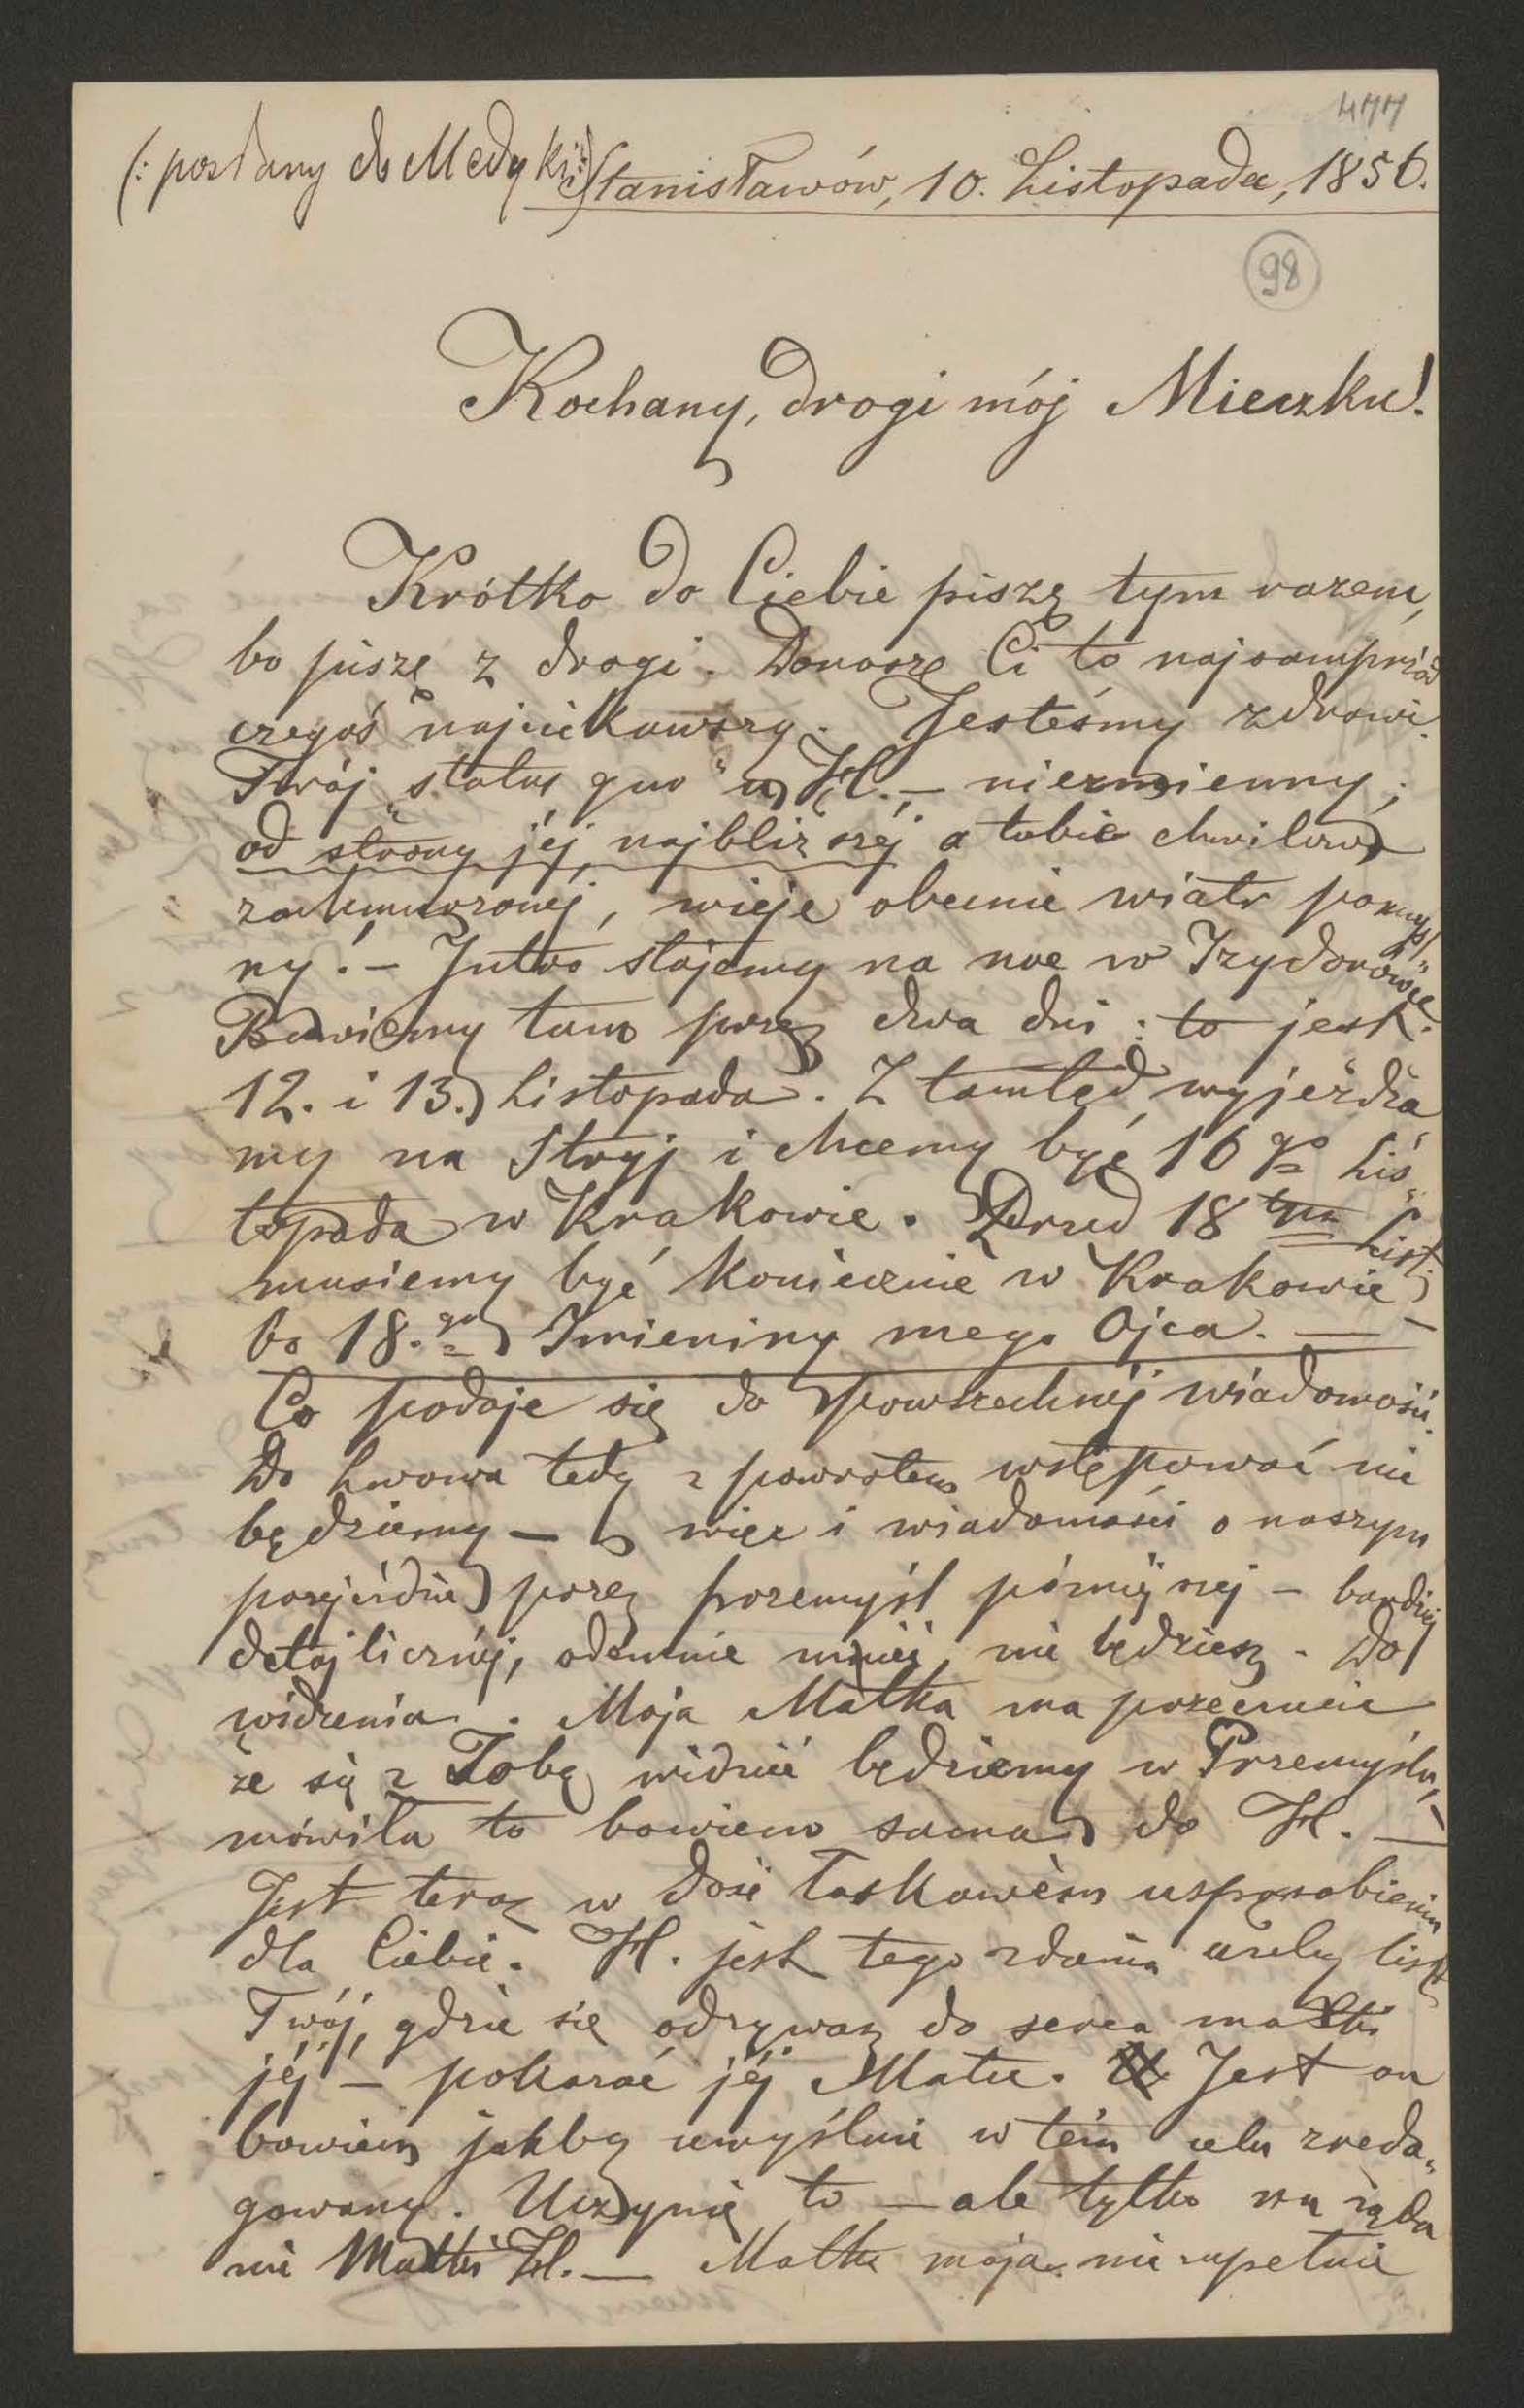 477
(: posłany do Medyki :) Stanisławów, 10. Listopada, 1856.
98
Kochany, drogi mój Mieczku!
Krótko do Ciebie piszę tym razem,
bo piszę z drogi. Donoszę Ci to najsampriód
czegoś najciekawszy. Jesteśmy zdrowi.
Twój „status quo" u H. — niezmienny;
od strony jéj najbliższéj a tobie chwilowo
zachmurzonéj, wieje obecnie wiatr pomyśl„
ny. — Jutro stajemy na noc w Izydorówce.
Bawiemy tam przez dwa dni: to jest:
12. i 13. Listopada. Z tamtąd wyjeżdża„
my na Stryj i chcemy być 16go Lis„
topada w Krakowie. Przed 18tym List.
musiemy być koniecznie w Krakowie,
bo 18.go Imieniny mego Ojca. —
Co podaje się do powszechnéj wiadomości.
Do Lwowa tedy z powrotem wstępować nie
będziemy — więc i wiadomości o naszym
przejeździe przez Przemyśl późniejszej — bardziej
detajlicznéj, odemnie mieć nie będziesz. Do
widzenia. Moja Matka ma przeczucie
że się z Tobą widzieć będziemy w Przemyślu, —
mówiła to bowiem sama do H. —
Jest teraz w dość łaskawém usposobieniu
dla Ciebie. H. jest tego zdania ażeby list
Twój, gdzie się odzywasz do serca matki
jéj — pokazać jéj Matce. Jest on
bowiem jakby umyślnie w tém celu zreda„
gowany. Uczynię to — ale tylko na żąda
nie Matki H. — Matka moja nie zupełnie